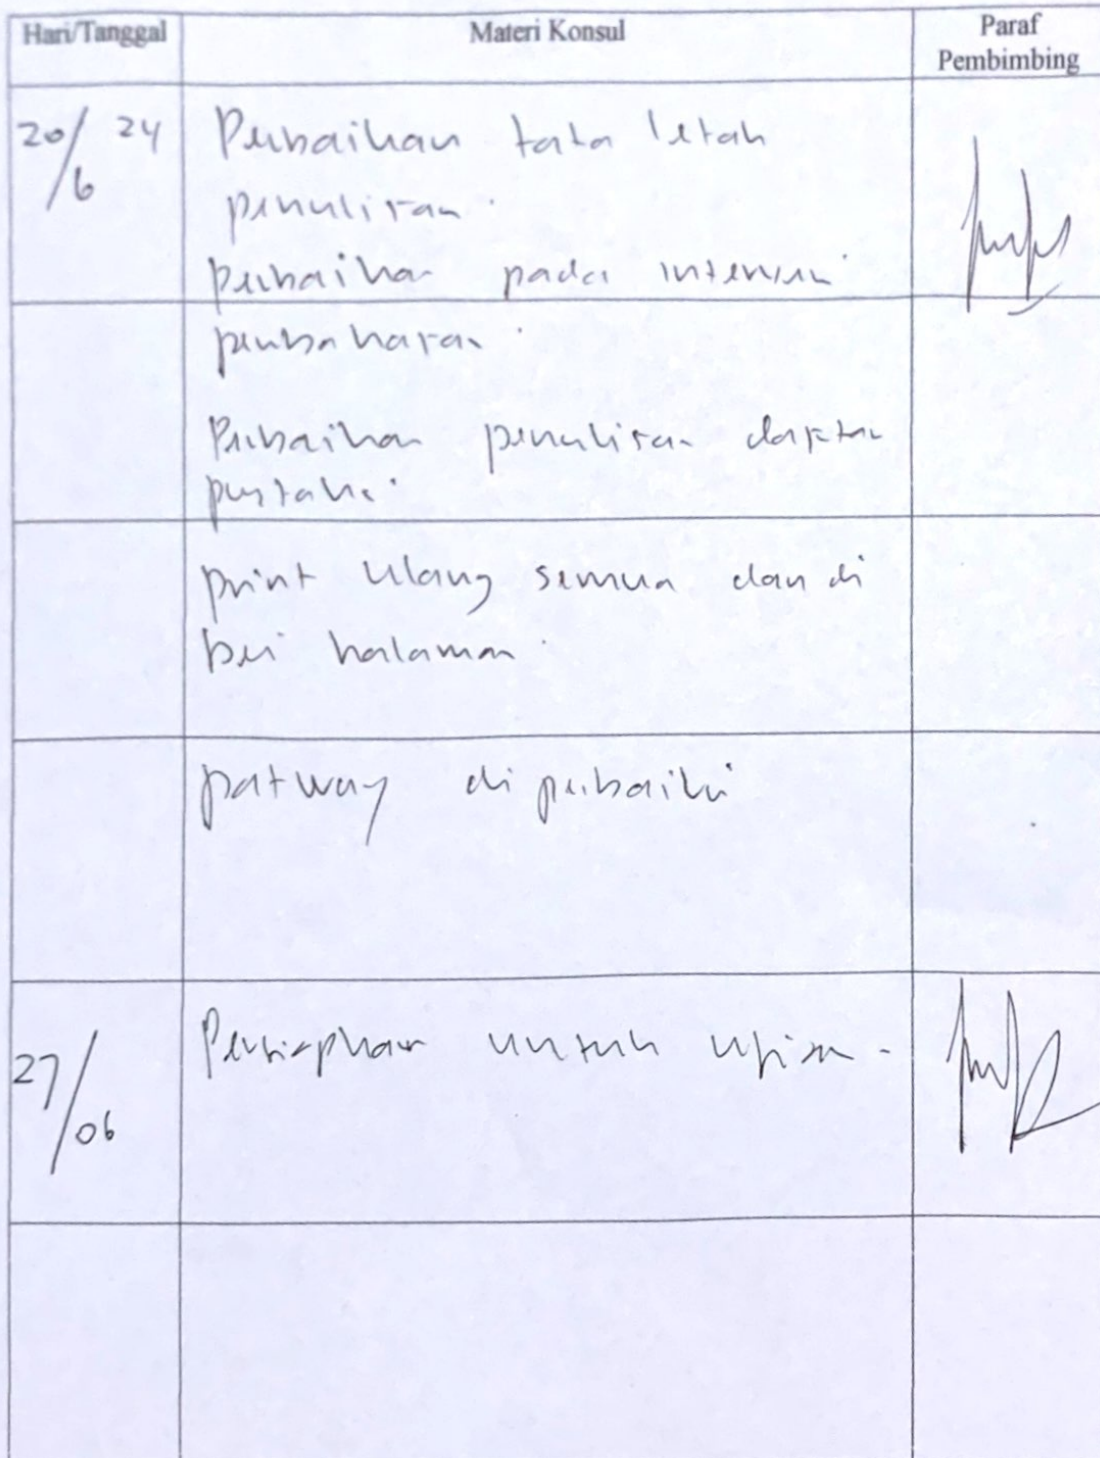 Hari/Tanggal Materi Konsul Paraf Pembimbing
20/6 24 Perbaikan tata letak
penulisan.
perbaikan pada intervensi
pembaharan.
Perbaikan penulisan daftar
pustaka.
print ulang semua dan di
beri halaman.
patway di perbaiki
27/06 Persiaphan untuk ujian.